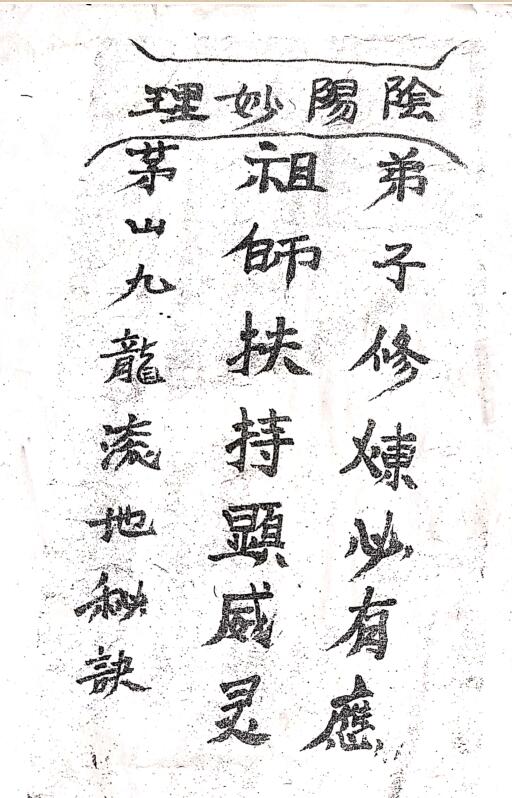 陰陽妙理
弟子修煉必有應
祖師扶持顕威灵
茅山九龍流地秘訣